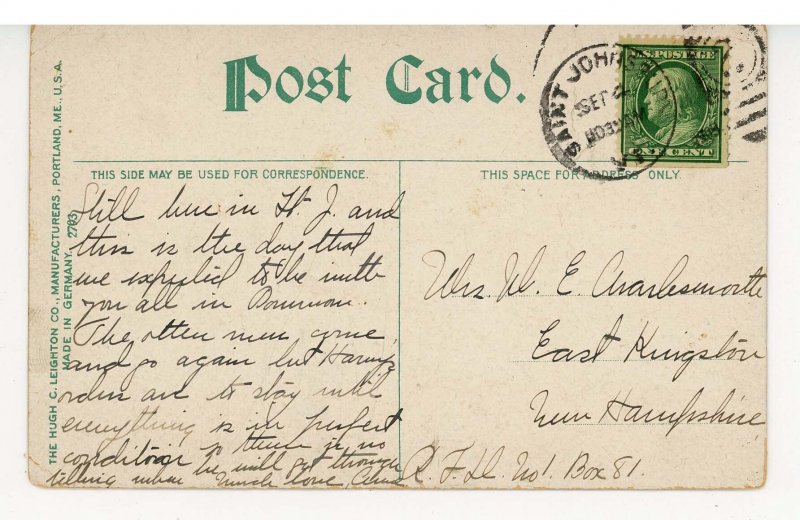 Post Card.
THIS SIDE MAY BE USED FOR CORRESPONDENCE.
THIS SPACE FOR ADDRESS ONLY.
THE HUGH C. LEIGHTON CO., MANUFACTURERS, PORTLAND, ME., U.S.A.
MADE IN GERMANY. 2793
U.S. POSTAGE
SAINT JOHNSBURY
SEP
VT
Still here in St. J. and
this is the day that
we expected to be with
you all in
The other men come
and go again but Harry's
orders are to stay until
everything is in perfect
condition so there is no
telling when he will get through
Much love,
Mrs. W. E. Charlesworth
East Kingston
New Hampshire
R. F. D. No 1. Box 81.